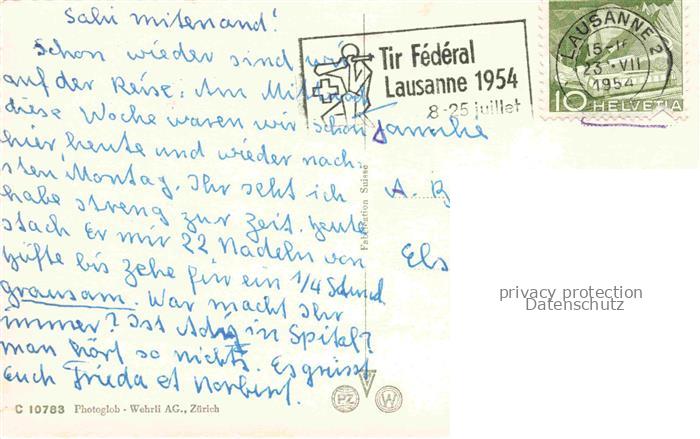 Salü mitenand!
Schon wieder sind wir
auf der Reise. Am Mittwoch
diese Woche waren wir schon
hier heute und wieder näch-
sten Montag. Ihr seht ich
habe streng zur Zeit. Heute
stach Er mir 22 Nadeln von
Hüfte bis Zehe für ein 1/4 Stund
grausam. War macht Ihr
immer? Ist in Spital?
man hört so nichts. Es grüsst
Euch Frieda et Norbert.
C 10783 Photoglob - Wehrli AG., Zürich
Tir Fédéral
Lausanne 1954
8-25 juillet
LAUSANNE 2
23·VII
1954
10 HELVETIA
Familie
A. B
Els
Fabrication Suisse
PZ W
privacy protection
Datenschutz